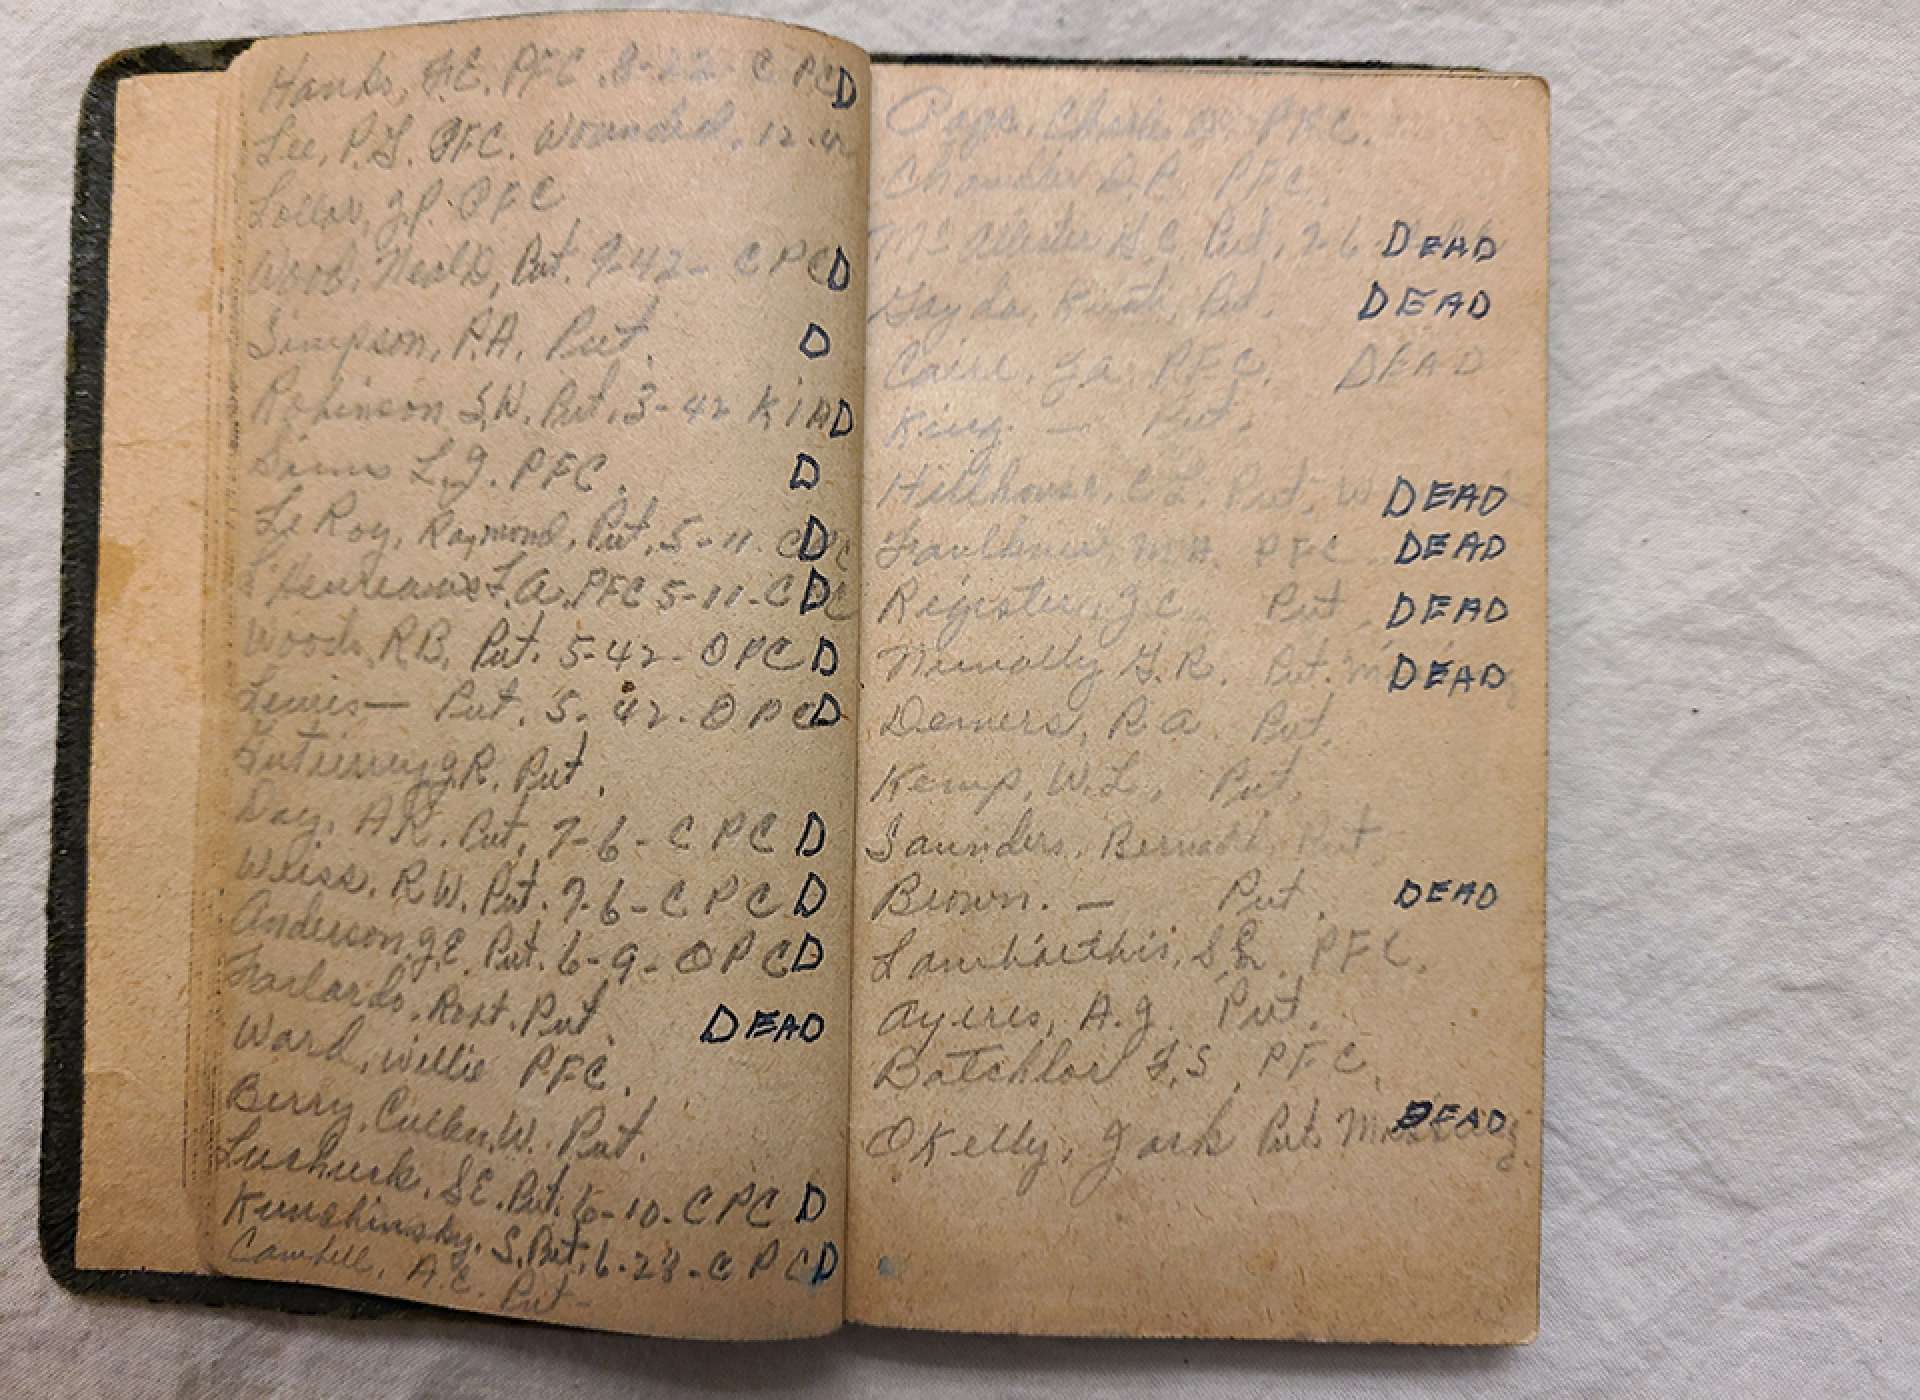 Hanks, A.E. PFC. 8-22- C PC D
Lee, P.L. PFC. Wounded. 12-42
Lollar, J.P. PFC
Wood, Neal D, Pvt. 9-42- C PC D
Simpson, P.A. Pvt. D
Robinson S.W. Pvt. 3-42 KIA D
Sims L.J. PFC. D
Le Roy, Raymond, Pvt. 5-11. C D C
L.A. PFC 5-11-C D C
Woods, R.B. Pvt. 5-42- O PC D
Lewis — Pvt. 5-42- O PC D
J.R. Pvt.
Day, A.R. Pvt. 7-6- C PC D
Weiss, R.W. Pvt. 7-6- C PC D
Anderson, J.E. Pvt. 6-9- O PC D
Robt. Pvt. DEAD
Ward, Willie PFC.
Berry, Cullen, W. Pvt.
Lushuck, S.E. Pvt. 6-10- C PC D
S. Pvt. 6-28- C PC D
A.C. Pvt-
Page, PFC.
Chandler D.P. PFC.
McAllister H.C. Pvt, 7-6 DEAD
Gayda, Pvt. DEAD
J.A. PFC. DEAD
King. — Pvt.
Hillhouse, C.L. Pvt. W DEAD
Faulkner, M.H. PFC DEAD
Register, J.C. Pvt DEAD
G.R. Pvt. DEAD
Demers, R.A. Pvt.
Kemp, W.L., Pvt.
Saunders, Pvt.
Brown. — Pvt. DEAD
S.E. PFC.
Ayeres, A.J. Pvt.
Batchlor F.S, PFC.
OKelly, Jack Pvt. Missing DEAD